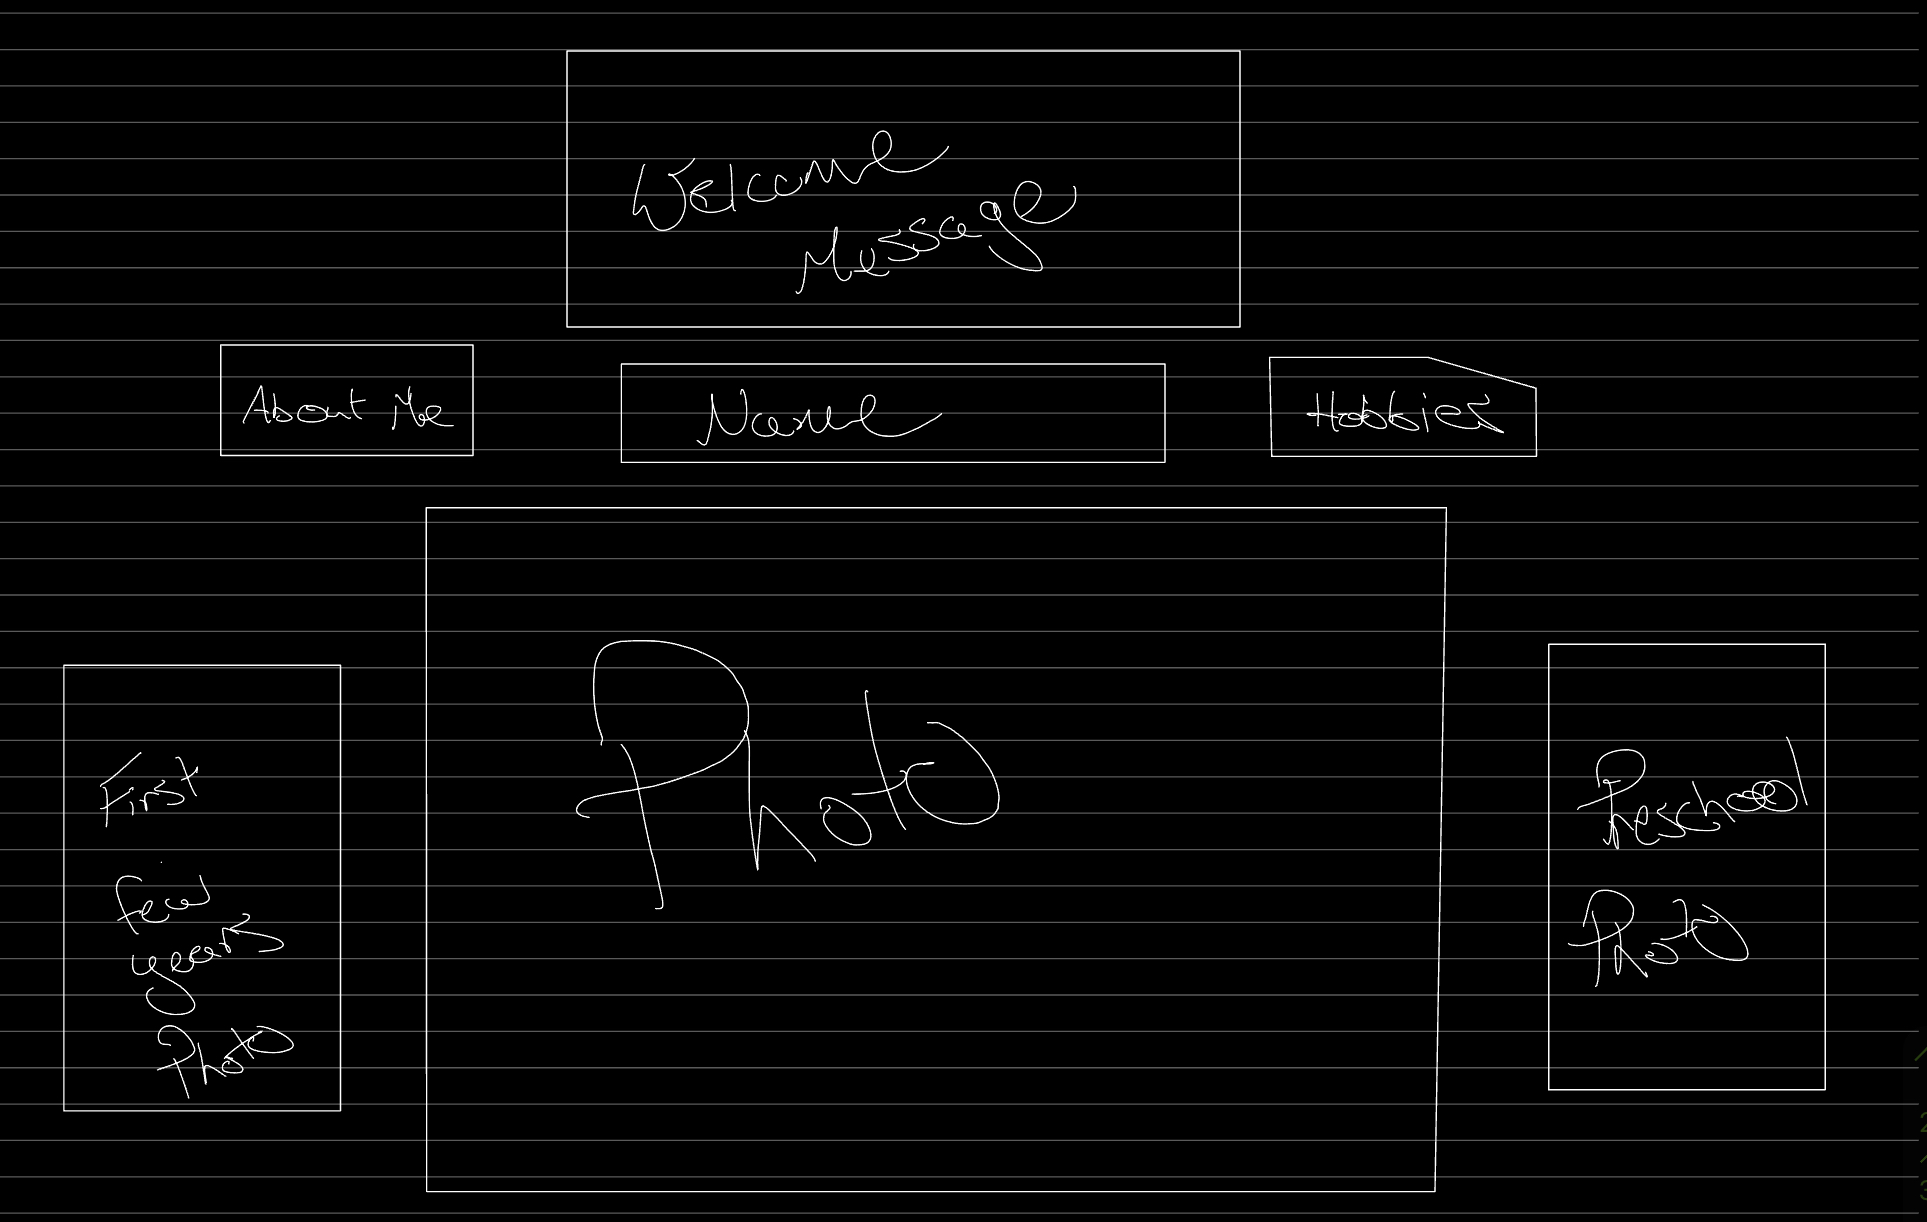 Welcome
Message
About Me
Name
Hobbies
Photo
First
few
years
Photo
Preschool
Photo